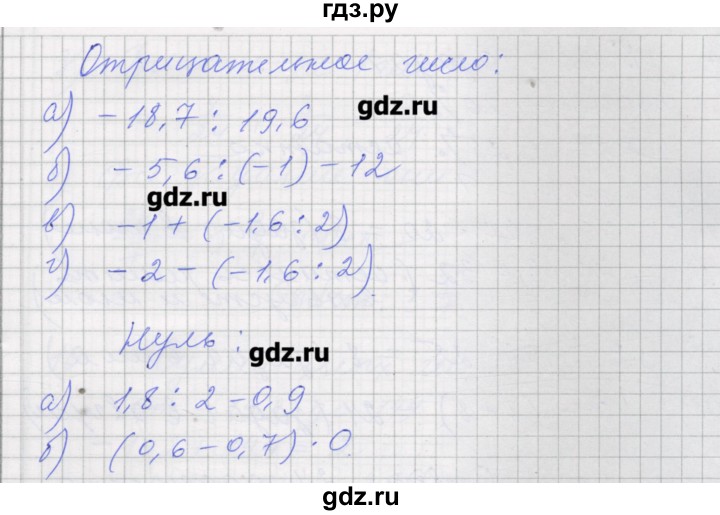 гдз.ру
Отрицательное число:
а) -18,7 : 19,6
gdz.ru
б) -5,6 : (-1) - 12
gdz.ru
в) -1 + (-1,6 : 2)
г) -2 - (-1,6 : 2).
Нуль:
gdz.ru
а) 1,8 : 2 - 0,9
б) (0,6 - 0,7) · 0.
gdz.ru